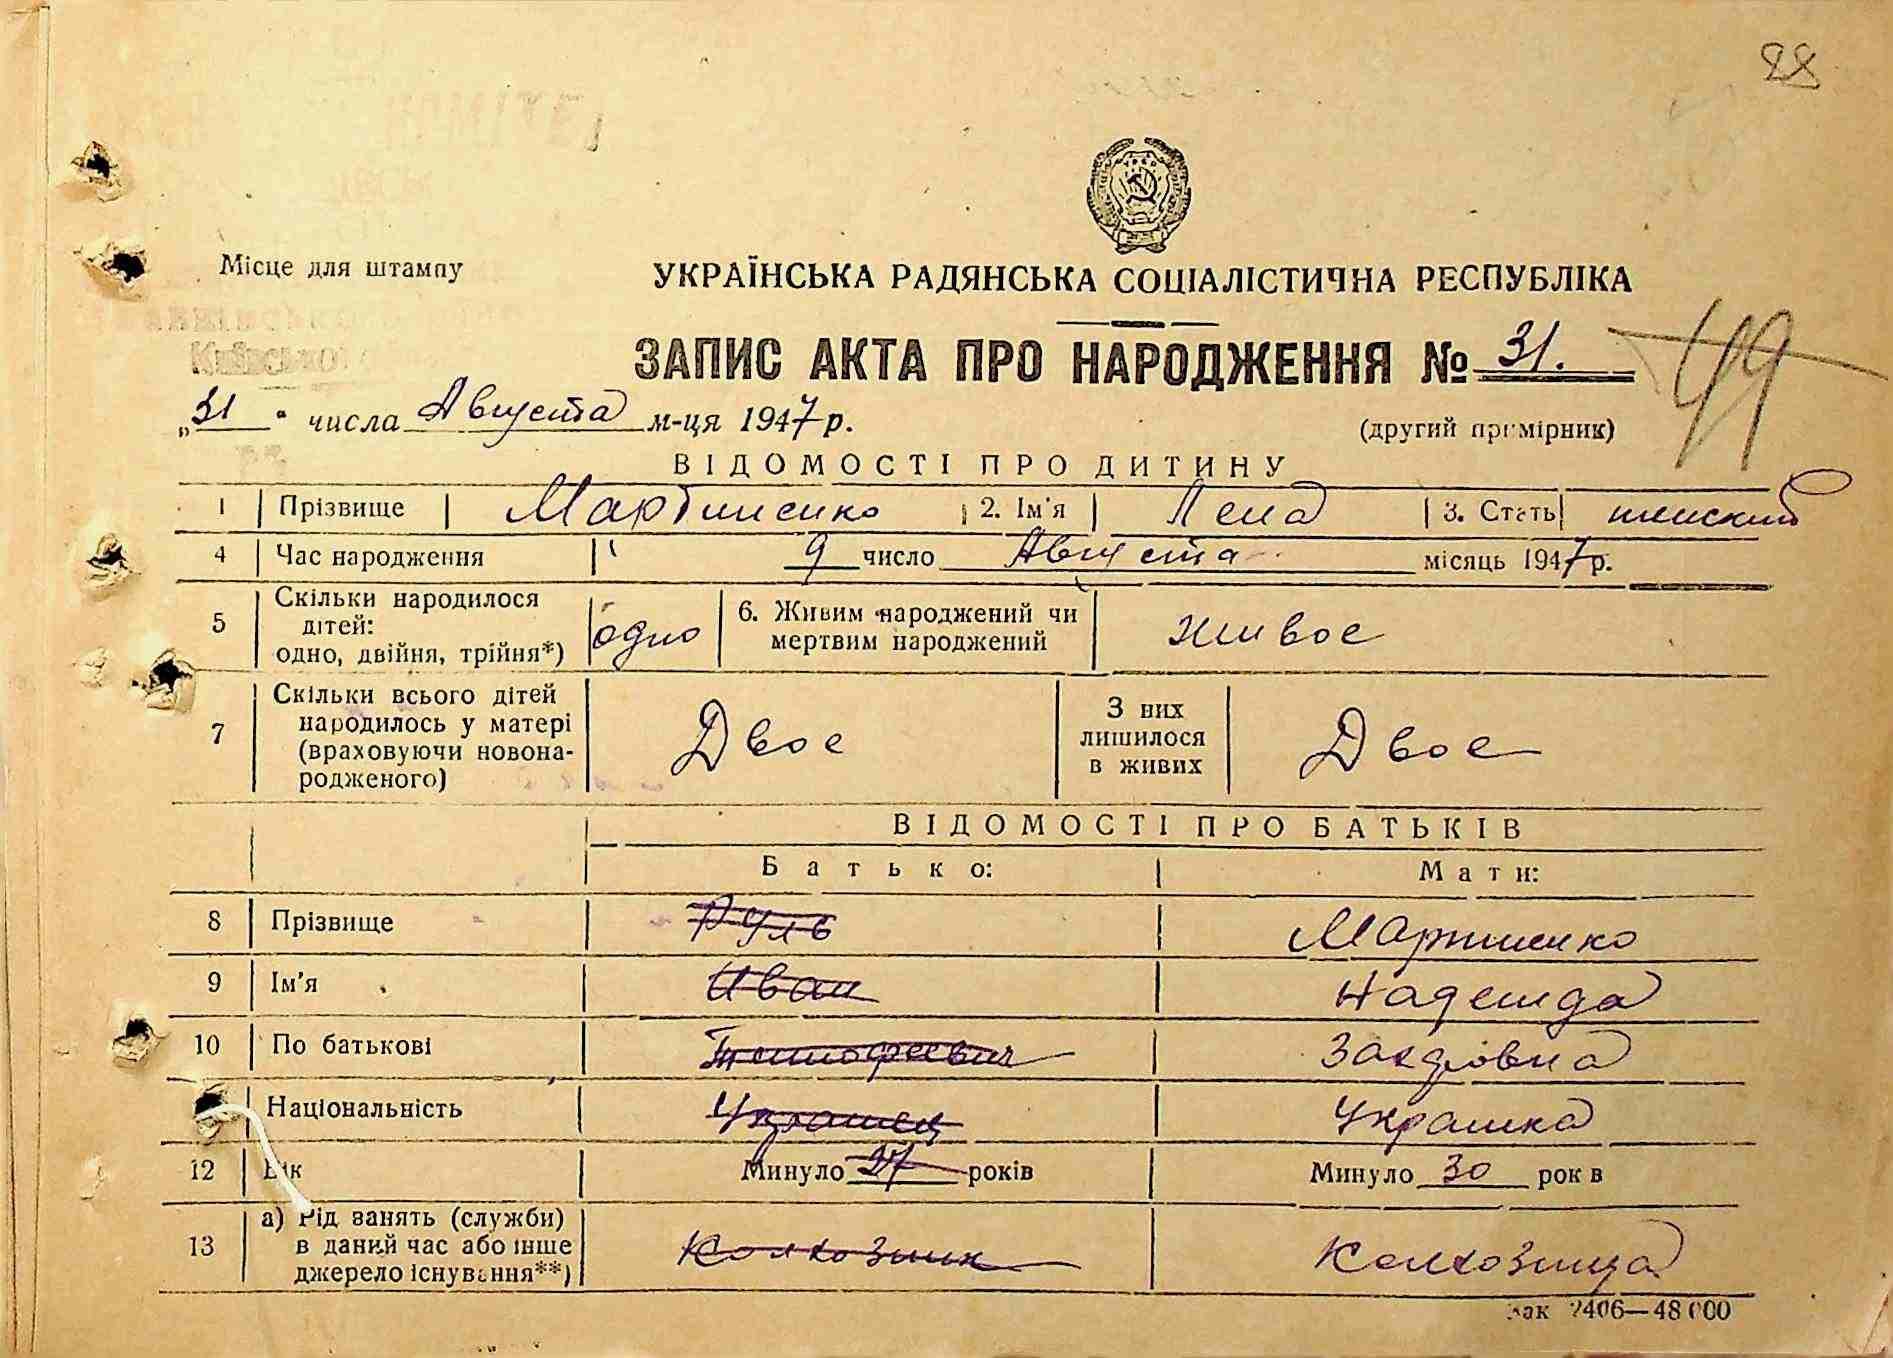 28
Місце для штампу
УКРАЇНСЬКА РАДЯНСЬКА СОЦІАЛІСТИЧНА РЕСПУБЛІКА
Київсько
ЗАПИС АКТА ПРО НАРОДЖЕННЯ № 31.
49
„31" числа Августа м-ця 1947 р.
(другий примірник)
ВІДОМОСТІ ПРО ДИТИНУ
1 Прізвище Мартиненко 2. Ім'я Лена 3. Стать женский
4 Час народження 9 число Августа місяць 1947 р.
5 Скільки народилося дітей: одно, двійня, трійня*) одно 6. Живим народжений чи мертвим народжений живое
7 Скільки всього дітей народилось у матері (враховуючи новонародженого) Двое З них лишилося в живих Двое
ВІДОМОСТІ ПРО БАТЬКІВ
Батько: Мати:
8 Прізвище Руль Мартиненко
9 Ім'я Иван Надежда
10 По батькові Тимофеевич Захаровна
Національність Украинец Украинка
12 Вік Минуло 37 років Минуло 30 рок в
13 а) Рід занять (служби) в даний час або інше джерело існування**) Колхозник Колхозница
Зак 2406—48 000